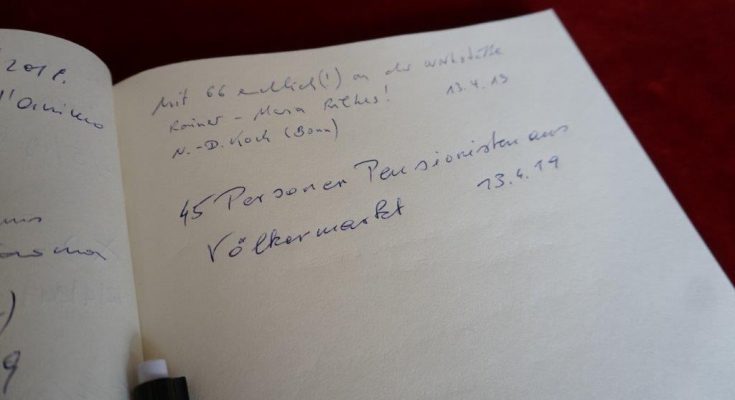 2019.
l'animo
9
Mit 66 endlich(!) an der Wirkstätte
Rainer-Maria Rilkes! 13.4.19
N.-D. Koch (Bonn)
45 Personen Pensionisten aus
Völkermarkt 13.4.19